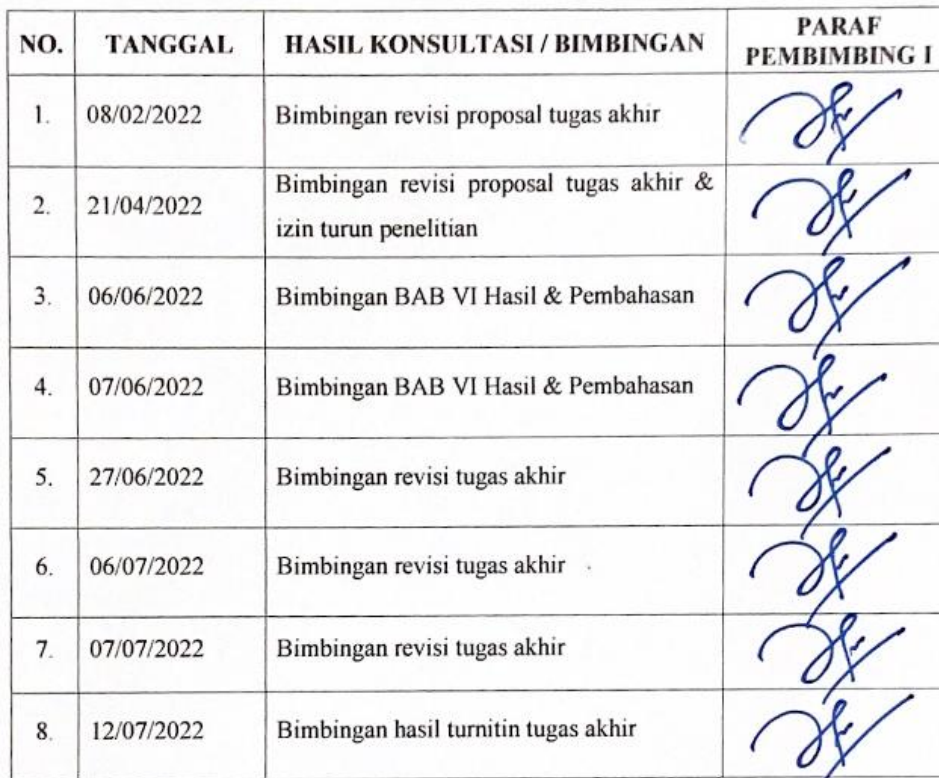 NO. TANGGAL HASIL KONSULTASI / BIMBINGAN PARAF PEMBIMBING I
1. 08/02/2022 Bimbingan revisi proposal tugas akhir
2. 21/04/2022 Bimbingan revisi proposal tugas akhir &
izin turun penelitian
3. 06/06/2022 Bimbingan BAB VI Hasil & Pembahasan
4. 07/06/2022 Bimbingan BAB VI Hasil & Pembahasan
5. 27/06/2022 Bimbingan revisi tugas akhir
6. 06/07/2022 Bimbingan revisi tugas akhir
7. 07/07/2022 Bimbingan revisi tugas akhir
8. 12/07/2022 Bimbingan hasil turnitin tugas akhir